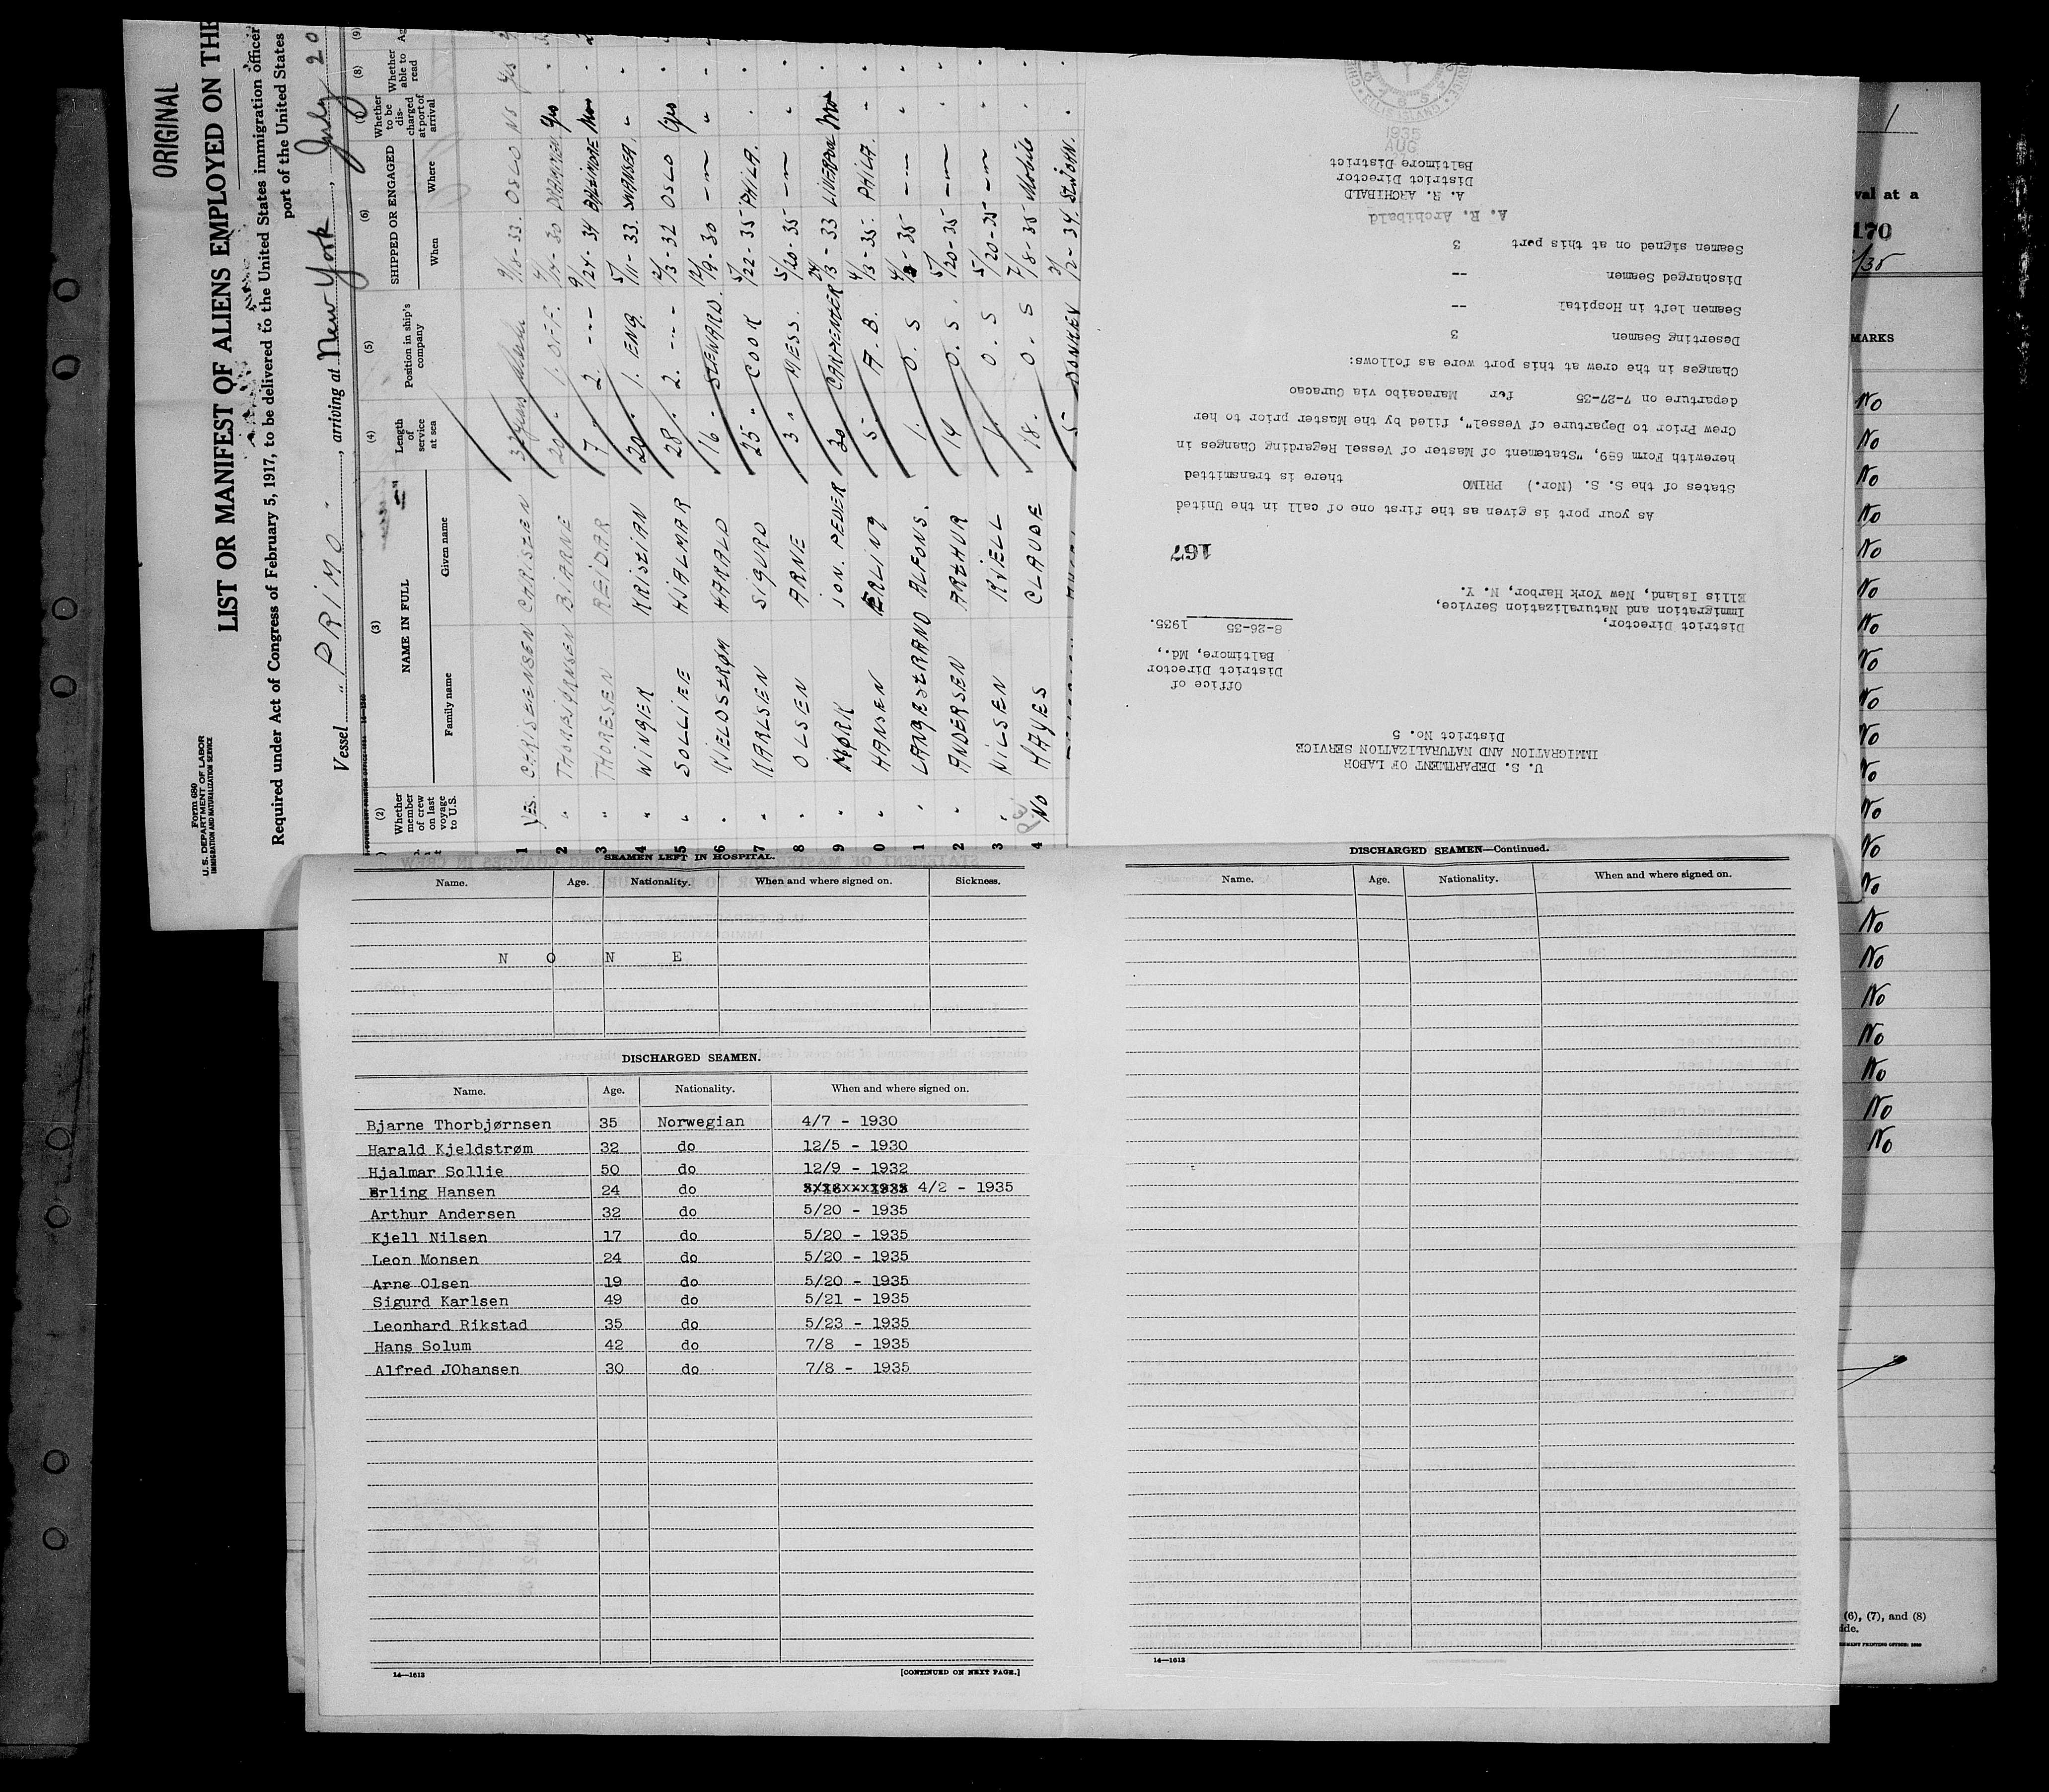 ORIGINAL
Form 680
U. S. DEPARTMENT OF LABOR
IMMIGRATION AND NATURALIZATION SERVICE
LIST OR MANIFEST OF ALIENS EMPLOYED ON THE
Required under Act of Congress of February 5, 1917, to be delivered to the United States immigration officer
port of the United States
Vessel PRIMO, arriving at New York, July 20
(2) (3) (4) (5) (6) (8) (9)
Whether member of crew on last voyage to U.S.
NAME IN FULL
Family name Given name
Length of service at sea
Position in ship's company
SHIPPED OR ENGAGED
When Where
Whether to be discharged at port of arrival
Whether able to read
1 YES. CHRISTENSEN CARISTEN 9/18-33. OSLO NS Yes
2 " THORBJØRNSEN BJARNE 20 " 1. OFF. 4/7-30 DRAMMEN Yes
3 " THORESEN REIDAR 7 " 2. --- 9/24-34 BALTIMORE No
4 " WINGER KRISTIAN 20 . 1. ENG. 5/11-33. SWANSEA. "
5 " SOLLIEE HJALMAR 28 . 2. --- 12/13-32 OSLO Yes
6 " KJELDSTRØM HARALD 16 - STEWARD. 12/9-30 -"- "
7 " KARLSEN SIGURD 25 " COOK 5/22-35 PHILA.
8 " OLSEN ARNE 3 " MESS. 5/20-35 -"- "
9 " MØRK JON. PEDER 30 CARPENTER 24/3-33 LIVERPOOL No
0 " HANSEN ERLING 5 - A. B. 4/3-35. PHILA. "
1 " LANGESTRAND ALFONS. 1. O. S -35 -"- "
2 " ANDERSEN ARTHUR 14 O. S. 5/20-35 -"- "
3 " NILSEN KJELL 1. O. S 5/20-35 -"- "
4 NO HAYES CLAUDE 18. O. S 7/8-35 Mobile "
5 - DONKEY 2-34. ST. JOHN.
U. S. DEPARTMENT OF LABOR
IMMIGRATION AND NATURALIZATION SERVICE
District No. 5
Office of
District Director
Baltimore, Md.,
8-26-35 1935.
District Director,
Immigration and Naturalization Service,
Ellis Island, New York Harbor, N. Y.
167
As your port is given as the first one of call in the United
States of the S. S. (Nor.) PRIMO there is transmitted
herewith Form 689, "Statement of Master of Vessel Regarding Changes in
Crew Prior to Departure of Vessel", filed by the Master prior to her
departure on 7-27-35 for Maracaibo via Curacao
Changes in the crew at this port were as follows:
Deserting Seamen 3
Seamen left in Hospital --
Discharged Seamen --
Seamen signed on at this port 3
A. R. Archibald
A. R. ARCHIBALD
District Director
Baltimore District
AUG
1935
ELLIS ISLAND
val at a
170
/35
MARKS
No
No
No
No
No
No
No
No
No
No
No
No
No
No
No
No
No
No
No
No
No
(6), (7), and (8)
SEAMEN LEFT IN HOSPITAL.
Name. Age. Nationality. When and where signed on. Sickness.
N O N E
DISCHARGED SEAMEN.
Name. Age. Nationality. When and where signed on.
Bjarne Thorbjørnsen 35 Norwegian 4/7 - 1930
Harald Kjeldstrøm 32 do 12/5 - 1930
Hjalmar Sollie 50 do 12/9 - 1932
Erling Hansen 24 do 4/2 - 1935
Arthur Andersen 32 do 5/20 - 1935
Kjell Nilsen 17 do 5/20 - 1935
Leon Monsen 24 do 5/20 - 1935
Arne Olsen 19 do 5/20 - 1935
Sigurd Karlsen 49 do 5/21 - 1935
Leonhard Rikstad 35 do 5/23 - 1935
Hans Solum 42 do 7/8 - 1935
Alfred JOhansen 30 do 7/8 - 1935
14—1613 [CONTINUED ON NEXT PAGE.]
DISCHARGED SEAMEN—Continued.
Name. Age. Nationality. When and where signed on.
14—1613